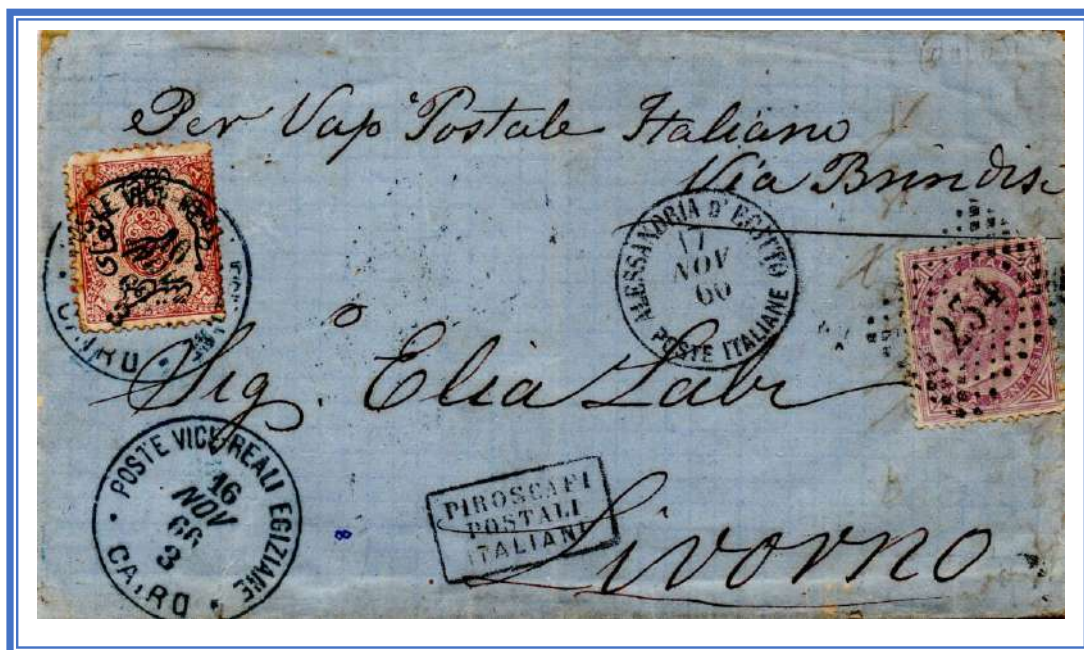 Per Vap e Postale Italiano
Via Brindisi
ALESSANDRIA D'EGITTO
17
NOV
60
POSTE ITALIANE
234
CAIRO
Sig. Elia Labi
POSTE VICE REALI EGIZIANE
16
NOV
66
3
CAIRO
PIROSCAFI
POSTALI
ITALIANI
Livorno